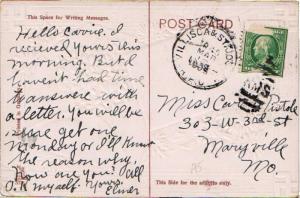 This Space for Writing Messages.
POSTCARD
VILLISCA &
Hello Carrie. I
recieved Yours this
morning. But I
havent had time
to answere with
a letter. You will be
sure get one
Monday or I'll Know
the reason why.
how are you? All
O.K. myself. Yours,
Elmer
Miss Carrie
303-W-3rd-St
Maryville
Mo.
This side for the address.